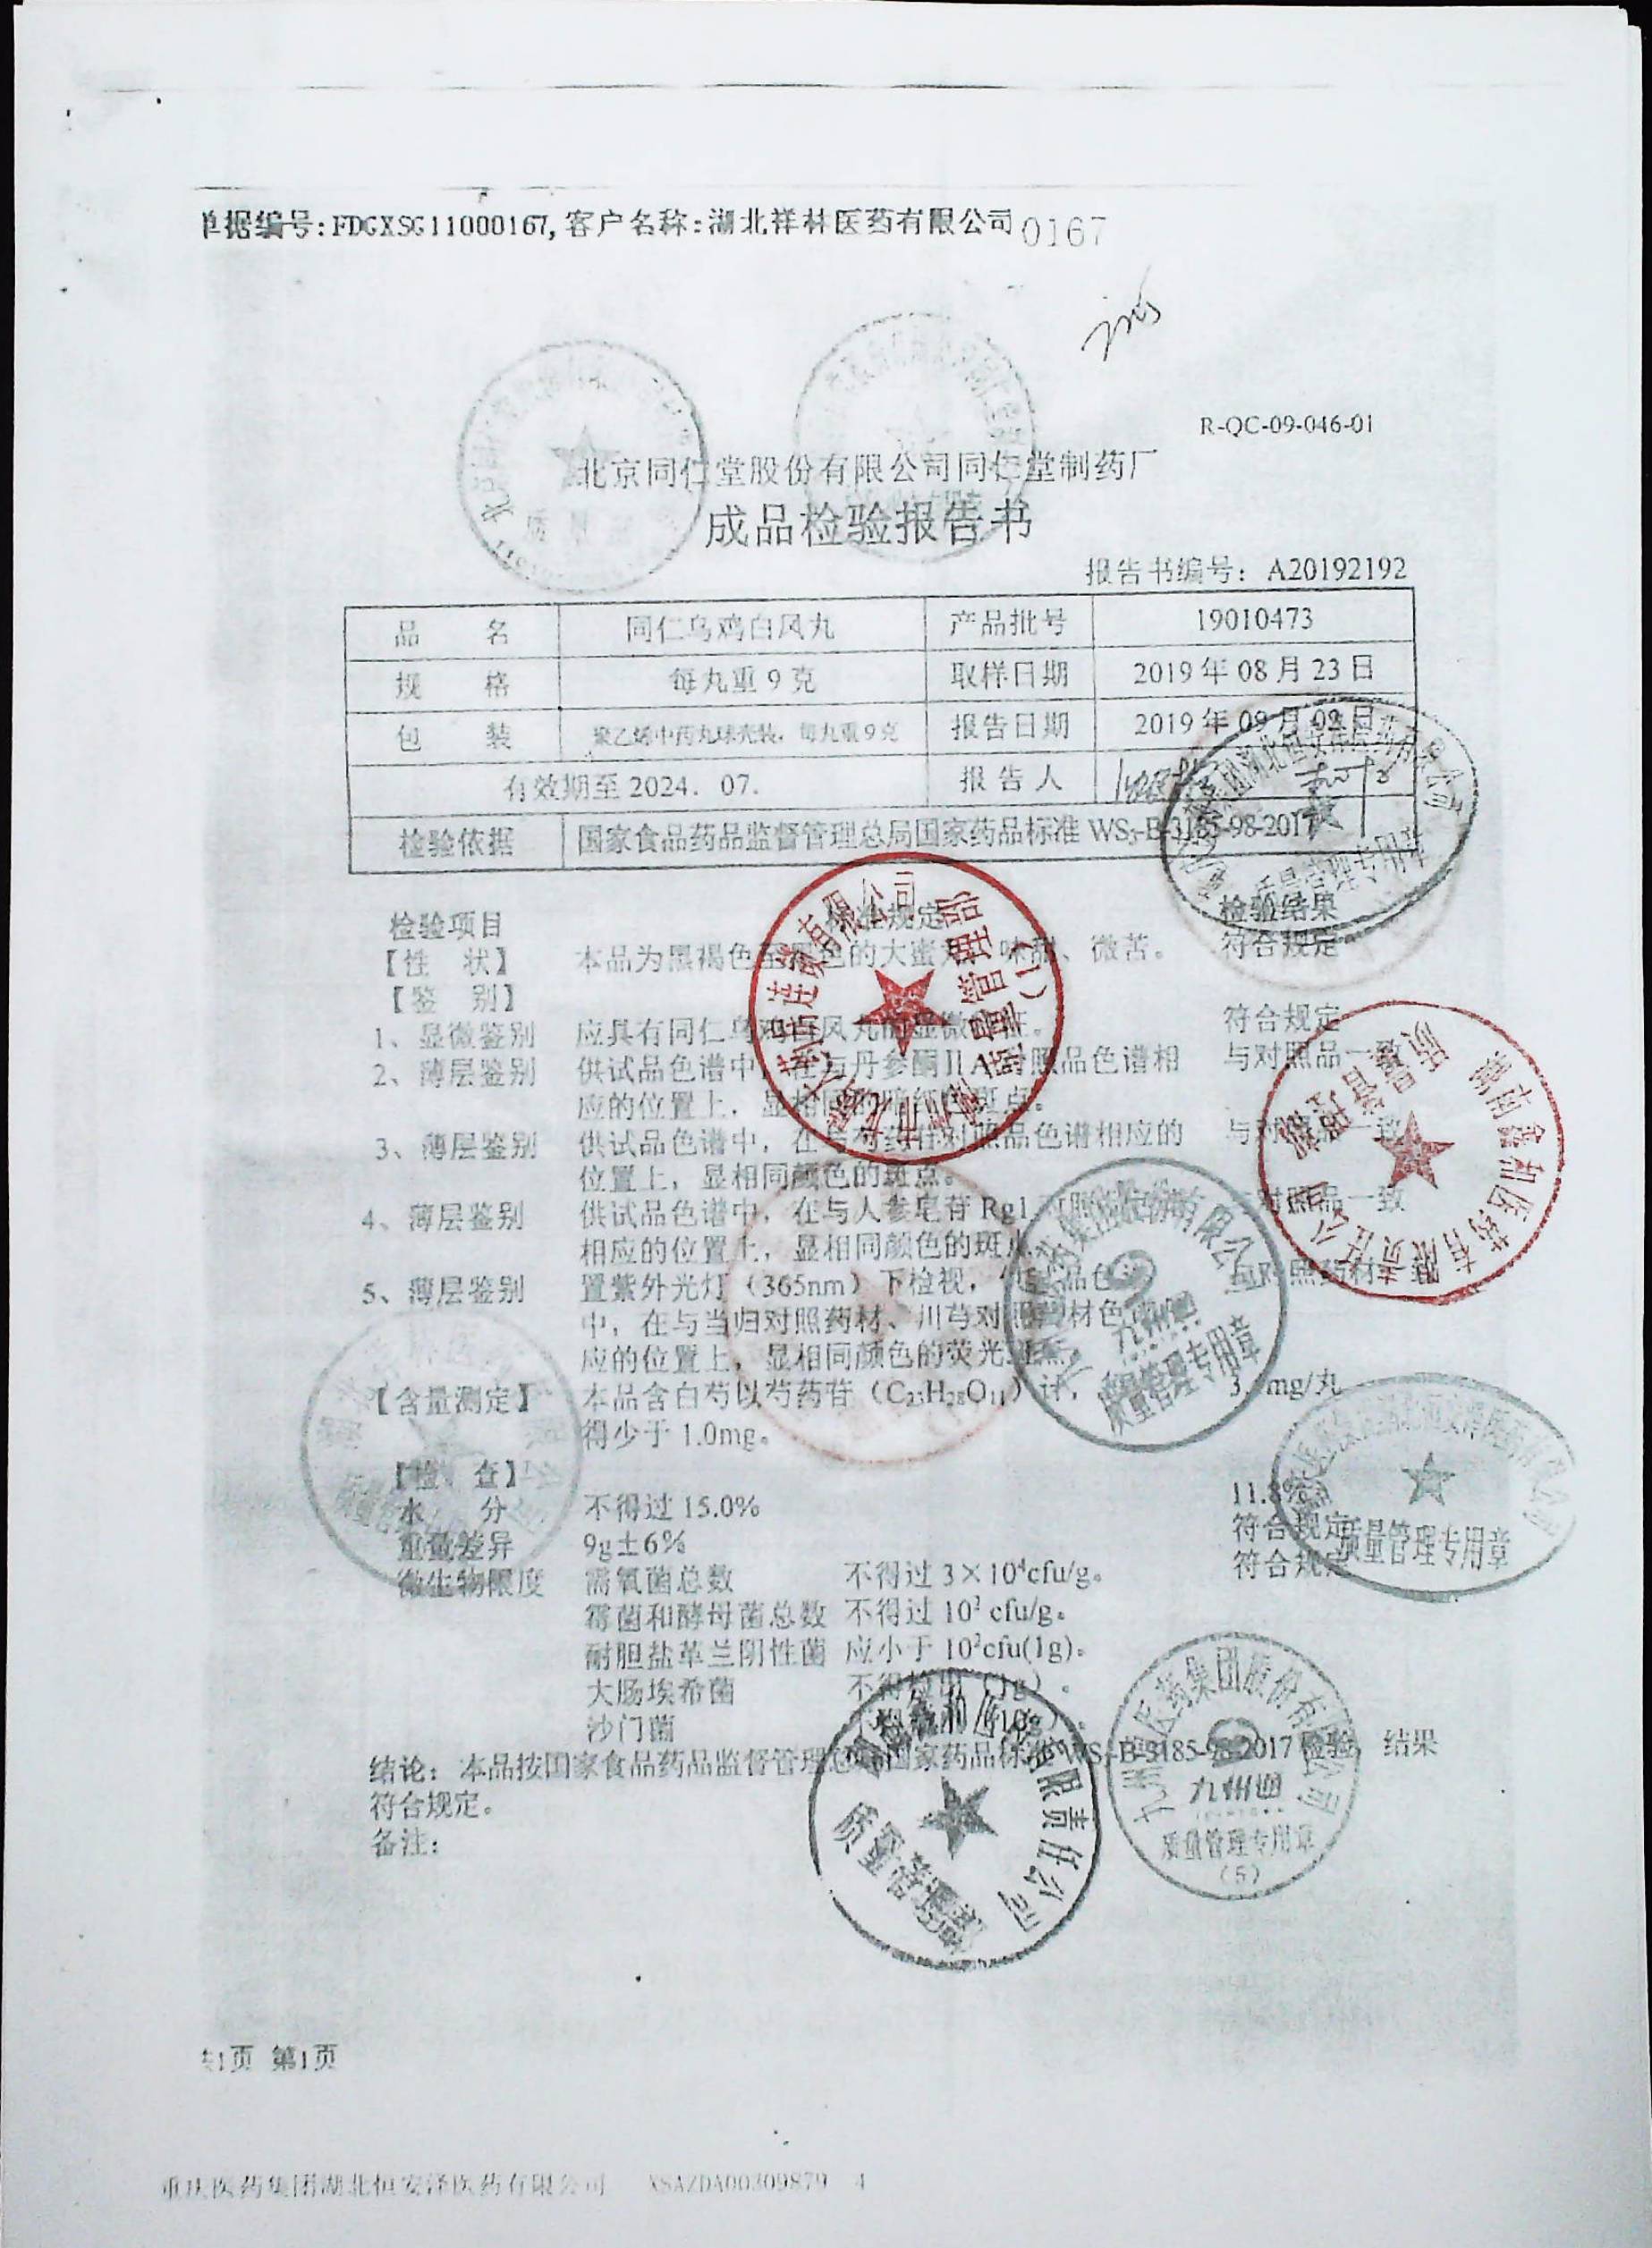 单据编号:FDGXSG11000167,客户名称:湖北祥林医药有限公司 0167
R-QC-09-046-01
北京同仁堂股份有限公司同仁堂制药厂
成品检验报告书
报告书编号：A20192192
品 名 同仁乌鸡白凤丸 产品批号 19010473
规 格 每丸重9克 取样日期 2019年08月23日
包 装 聚乙烯中药丸球壳装，每丸重9克 报告日期 2019年09月02日
有效期至2024．07． 报告人
检验依据 国家食品药品监督管理总局国家药品标准 WS₃-B-3185-98-2017
检验项目 标准规定 检验结果
【性 状】 本品为黑褐色至黑色的大蜜丸；味甜、微苦。 符合规定
【鉴 别】
1、显微鉴别 应具有同仁乌鸡白凤丸的显微特征。 符合规定
2、薄层鉴别 供试品色谱中，在与丹参酮ⅡA对照品色谱相 与对照品一致
应的位置上，显相同的暗红色斑点。
3、薄层鉴别 供试品色谱中，在与芍药苷对照品色谱相应的 与对照品一致
位置上，显相同颜色的斑点。
4、薄层鉴别 供试品色谱中，在与人参皂苷 Rg1 对照品色谱 与对照品一致
相应的位置上，显相同颜色的斑点。
5、薄层鉴别 置紫外光灯（365nm）下检视，供试品色谱 与对照药材一致
中，在与当归对照药材、川芎对照药材色谱相
应的位置上，显相同颜色的荧光斑点。
【含量测定】 本品含白芍以芍药苷（C₂₃H₂₈O₁₁）计， mg/丸
得少于 1.0mg。
【检 查】
水 分 不得过 15.0% 11.8%
重量差异 9g±6% 符合规定
微生物限度 需氧菌总数 不得过 3×10⁴cfu/g。 符合规定
霉菌和酵母菌总数 不得过 10² cfu/g。
耐胆盐革兰阴性菌 应小于 10²cfu(1g)。
大肠埃希菌 不得检出（1g）。
沙门菌 不得检出（10g）。
结论：本品按国家食品药品监督管理总局国家药品标准 WS₃-B-3185-98-2017 检验，结果
符合规定。
备注：
九州通医药集团股份有限公司
九州通
质量管理专用章
(5)
湖南鑫和医药有限责任公司
质量管理部
质量管理专用章
共1页 第1页
重庆医药集团湖北恒安泽医药有限公司 XSAZDA00309879 4